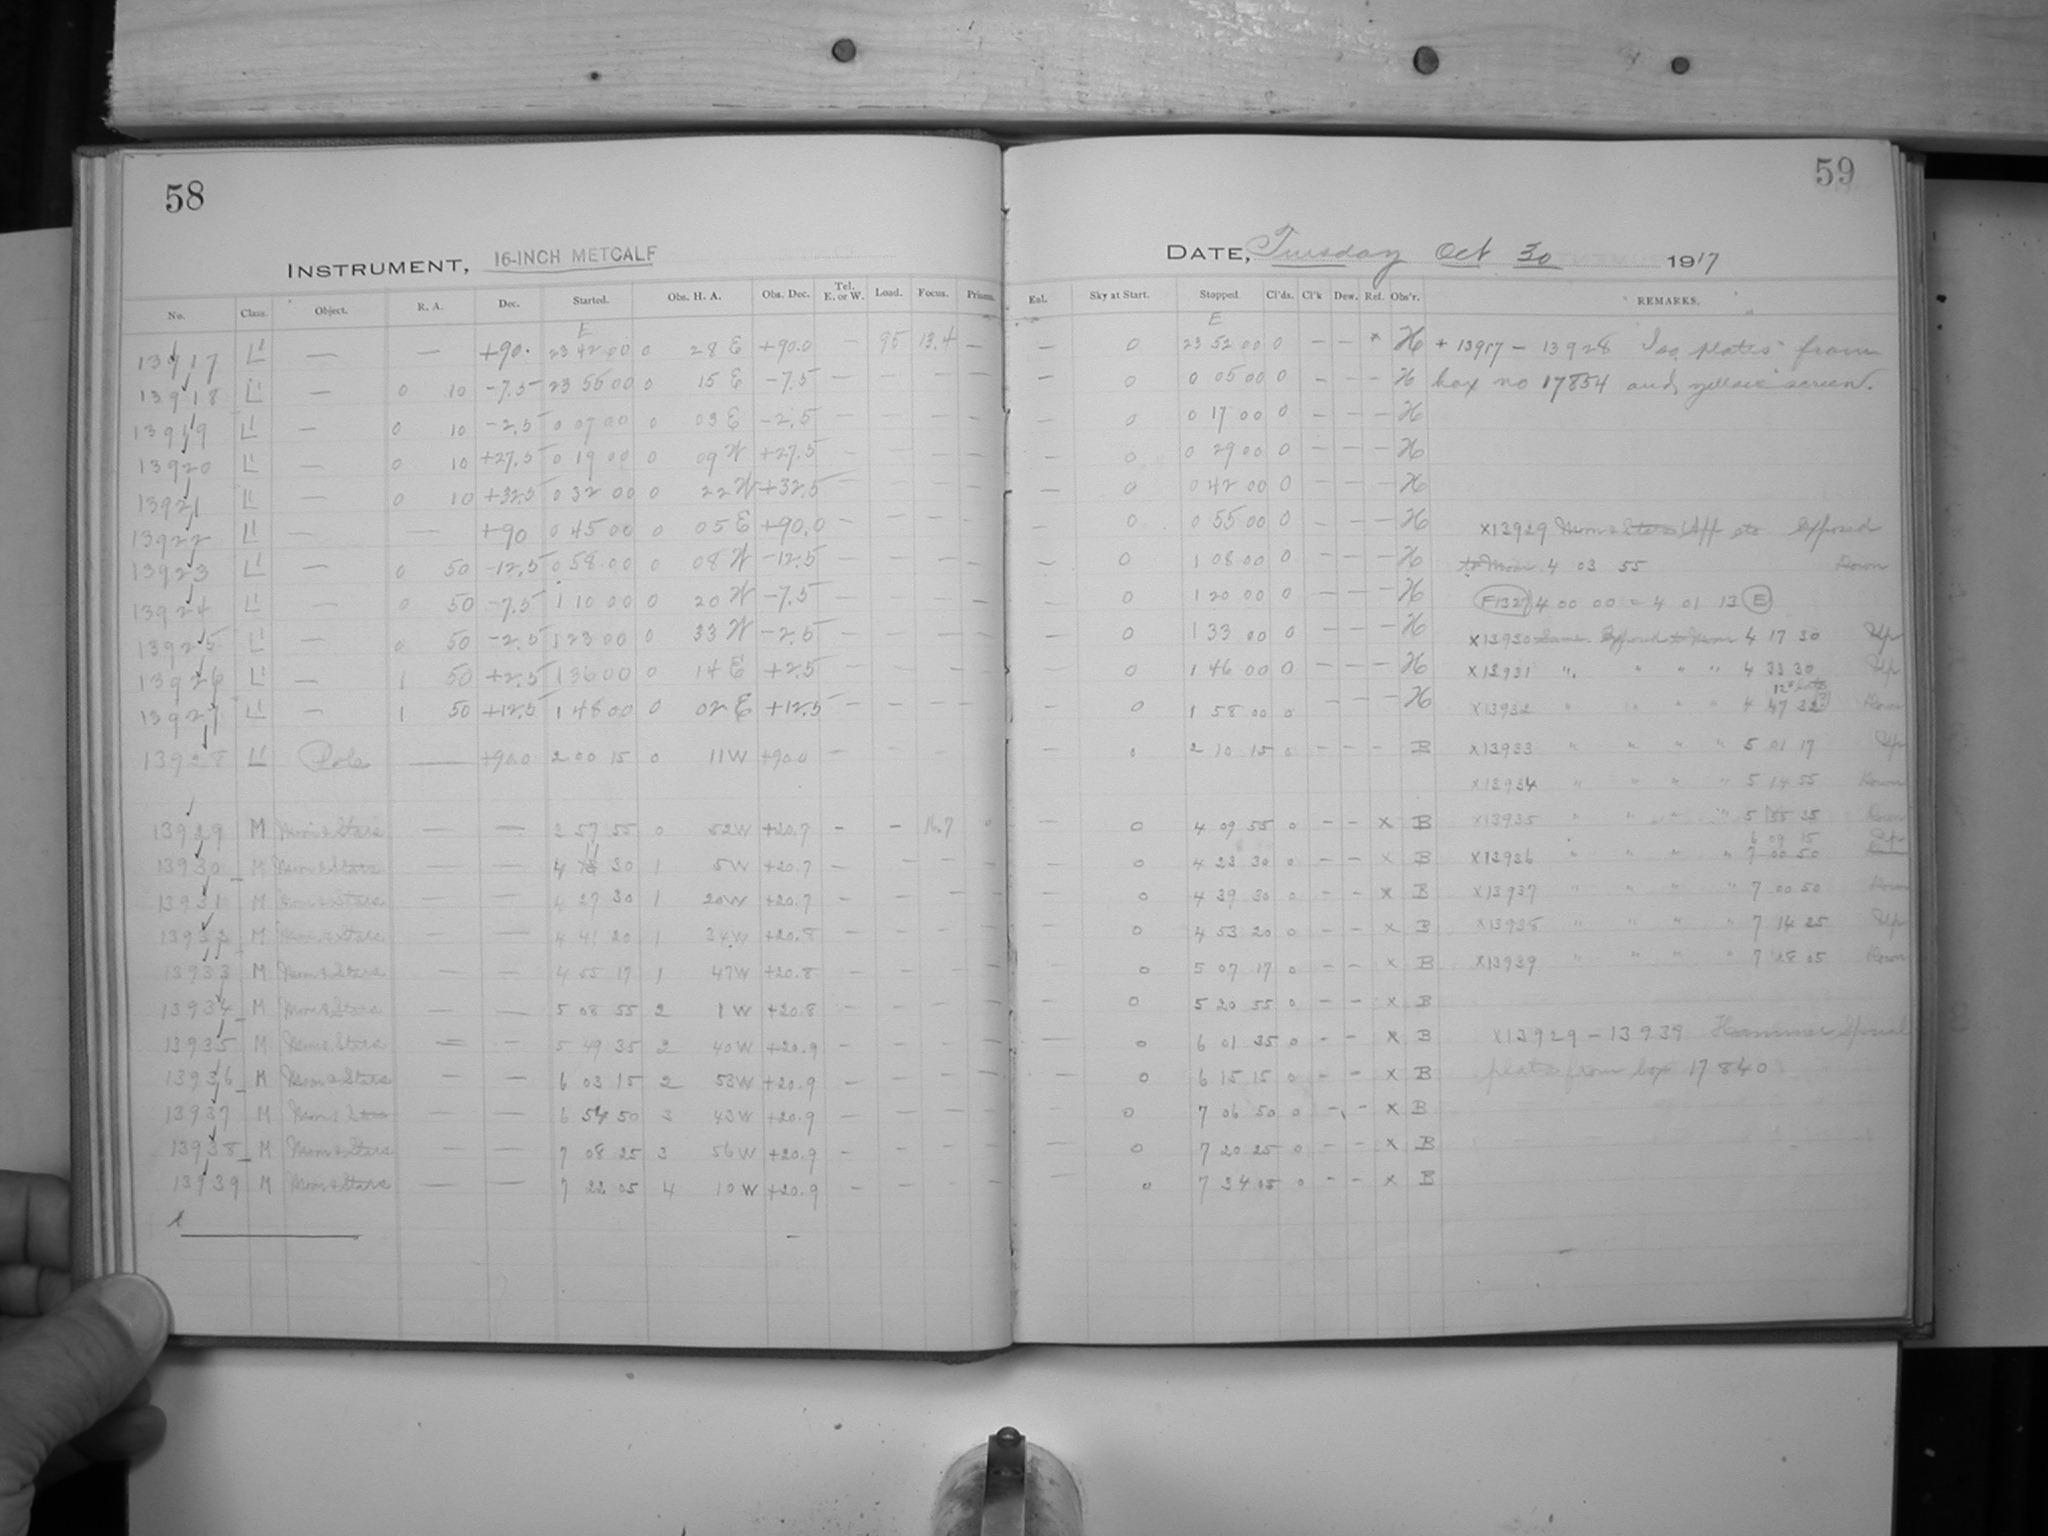 58
INSTRUMENT, 16-INCH METCALF
No. Class. Object. R. A. Dec. Started. Obs. H. A. Obs. Dec. Tel. E. or W. Load. Focus. Prisms.
E
13917 L' — — +90. 23 42 00 0 28 E +90.0 — 95 13.4 —
13918 L' — 0 10 -7.5 23 55 00 0 15 E -7.5 — — — —
13919 L' — 0 10 -2.5 0 07 00 0 03 E -2.5 — — — —
13920 L' — 0 10 +27.5 0 19 00 0 09 W +27.5 — — — —
13921 L' — 0 10 +32.5 0 32 00 0 22 W +32.5 — — — —
13922 L' — — +90 0 45 00 0 05 E +90.0 — — — —
13923 L' — 0 50 -12.5 0 58 00 0 08 W -12.5 — — — —
13924 L' — 0 50 -7.5 1 10 00 0 20 W -7.5 — — — —
13925 L' — 0 50 -2.5 1 23 00 0 33 W -2.5 — — — —
13926 L' — 1 50 +2.5 1 36 00 0 14 E +2.5 — — — —
13927 L' — 1 50 +12.5 1 48 00 0 02 E +12.5 — — — —
13928 L' Pole — +90.0 2 00 15 0 11 W +90.0 — — — —
13929 M Moon & Stars — — 3 57 55 0 52 W +20.7 - - 16.7
13930 M Moon & Stars — — 4 11 30 1 5 W +20.7 —
13931 M Moon & Stars — — 4 27 30 1 20 W +20.7 — — — —
13932 M Moon & Stars — — 4 41 20 1 34 W +20.8 — — — —
13933 M Moon & Stars — — 4 55 17 1 47 W +20.8 — — — —
13934 M Moon & Stars — — 5 08 55 2 1 W +20.8 — — — —
13935 M Moon & Stars — — 5 49 35 2 40 W +20.9 — — — —
13936 M Moon & Stars — — 6 03 15 2 53 W +20.9 — — — —
13937 M Moon & Stars — — 6 54 50 3 43 W +20.9 — — — —
13938 M Moon & Stars — — 7 08 25 3 56 W +20.9 — — — —
13939 M Moon & Stars — — 7 22 05 4 10 W +20.9 — — — —
59
DATE, Tuesday Oct 30 1917
Eal. Sky at Start. Stopped. Cl'ds. Cl'k Dew. Ref. Obs'r. REMARKS.
E
— 0 23 52 00 0 — — × H + 13917 - 13928 Iso plates from
— 0 0 05 00 0 — — — H box no 17854 and yellow screen.
— 0 0 17 00 0 — — — H
— 0 0 29 00 0 — — — H
— 0 0 42 00 0 — — — H
— 0 0 55 00 0 — — — H ×13929 Moon & Stars Exposed
— 0 1 08 00 0 — — — H to Moon 4 03 55 Down
— 0 1 20 00 0 — — — H F1327 4 00 00 = 4 01 13 E
— 0 1 33 00 0 — — — H ×13930 Same. Exposed to Moon 4 17 30 Up
— 0 1 46 00 0 — — — H ×13931 " " " " 4 33 30 Up
12s late
— 0 1 58 00 0 — — — H ×13932 " " " " 4 47 32 Down
0 2 10 15 0 — — — B ×13933 " " " " 5 01 17 Up
×13934 " " " " 5 14 55 Down
— 0 4 09 55 0 — — × B ×13935 " " " " 5 55 35 Down
6 09 15 Up
— 0 4 23 30 0 — — × B ×13936 " " " " 7 00 50
— 0 4 39 30 0 — — × B ×13937 " " " " 7 00 50 Down
— 0 4 53 20 0 — — × B ×13938 " " " " 7 14 25 Up
— 0 5 07 17 0 — — × B ×13939 " " " " 7 28 05 Down
— 0 5 20 55 0 — — × B
— 0 6 01 35 0 — — × B ×13929 - 13939 Hammer Special
— 0 6 15 15 0 — — × B plates from box 17840
— 0 7 06 50 0 — — × B
— 0 7 20 25 0 — — × B
— 0 7 34 05 0 — — × B